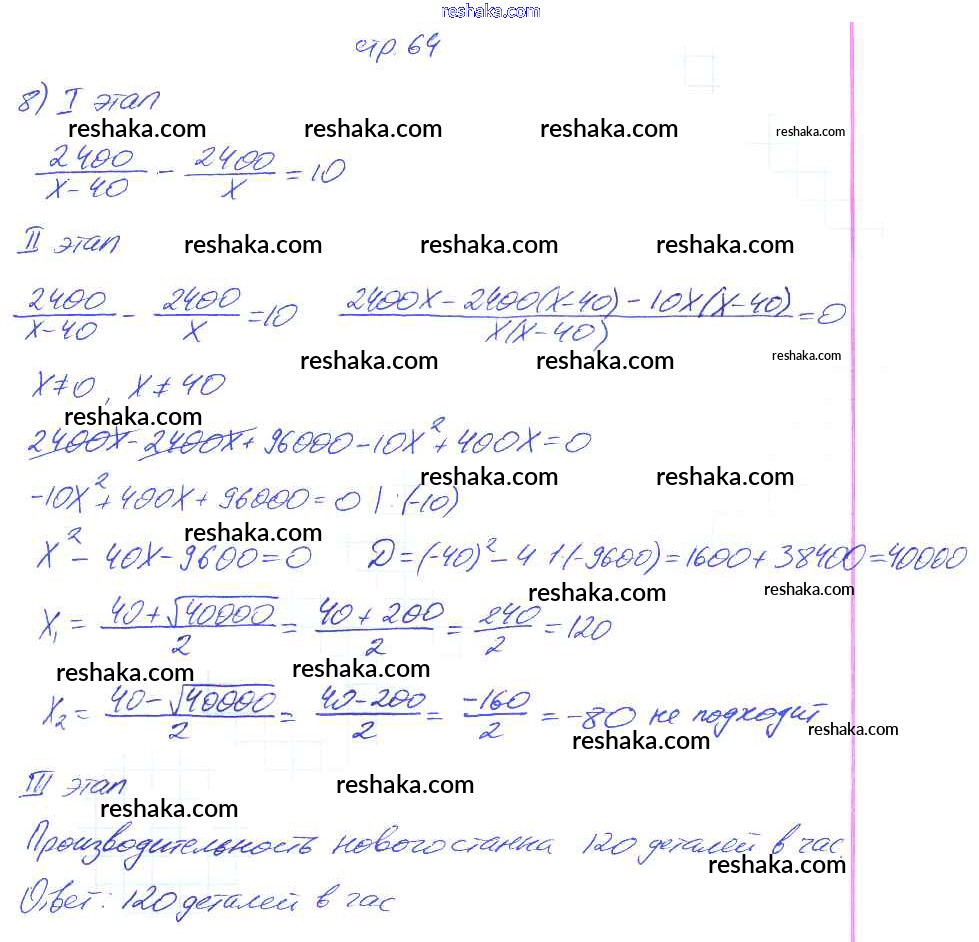 reshaka.com
стр. 64
8) I этап
reshaka.com reshaka.com reshaka.com reshaka.com
2400/(x-40) - 2400/x = 10
II этап reshaka.com reshaka.com reshaka.com
2400/(x-40) - 2400/x = 10 (2400x - 2400(x-40) - 10x(x-40))/(x(x-40)) = 0
reshaka.com reshaka.com reshaka.com
x ≠ 0, x ≠ 40
reshaka.com
2400x - 2400x + 96000 - 10x² + 400x = 0
reshaka.com reshaka.com
-10x² + 400x + 96000 = 0 | :(-10)
reshaka.com
x² - 40x - 9600 = 0 D = (-40)² - 4 1 (-9600) = 1600 + 38400 = 40000
reshaka.com reshaka.com
x₁ = (40 + √40000)/2 = (40 + 200)/2 = 240/2 = 120
reshaka.com reshaka.com
x₂ = (40 - √40000)/2 = (40 - 200)/2 = -160/2 = -80 не подходит
reshaka.com reshaka.com
III этап reshaka.com
reshaka.com
Производительность нового станка 120 деталей в час.
reshaka.com
Ответ: 120 деталей в час